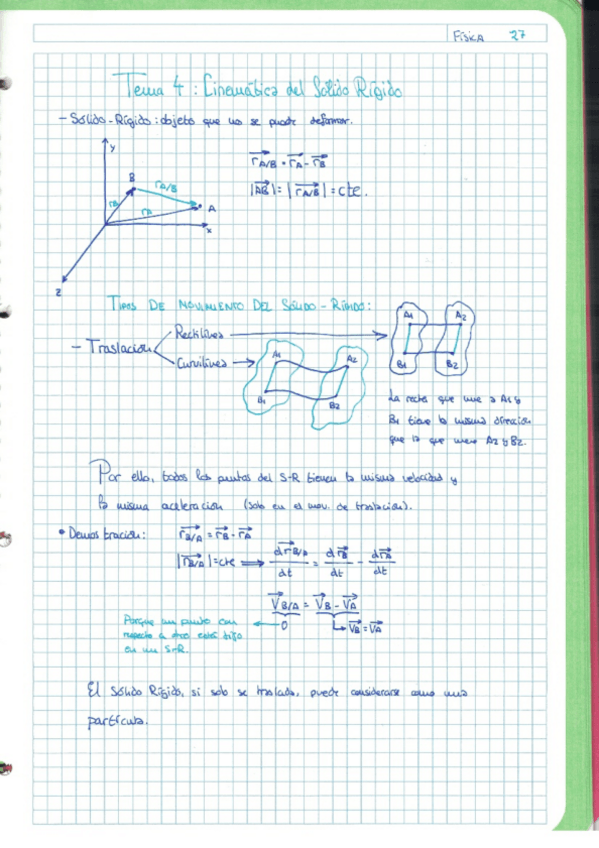 FÍSICA 27
Tema 4: Cinemática del Sólido Rígido
- Sólido-Rígido: objeto que no se puede deformar.
y
B
r_A/B
r_B
r_A
A
x
z
r_A/B = r_A - r_B
|AB| = |r_A/B| = cte.
TIPOS DE MOVIMIENTO DEL SÓLIDO-RÍGIDO:
- Traslación
Rectilínea
Curvilínea
A1 A2
B1 B2
A1 A2
B1 B2
La recta que une a A1 y
B1 tiene la misma dirección
que la que une A2 y B2.
Por ello, todos los puntos del S-R tienen la misma velocidad y
la misma aceleración (solo en el mov. de traslación).
• Demostración: r_B/A = r_B - r_A
|r_B/A| = cte ⟹ dr_B/A/dt = dr_B/dt - dr_A/dt
V_B/A = V_B - V_A
0 ↳ V_B = V_A
Porque un punto con
respecto a otro está fijo
en un S-R.
El Sólido Rígido, si solo se traslada, puede considerarse como una
partícula.